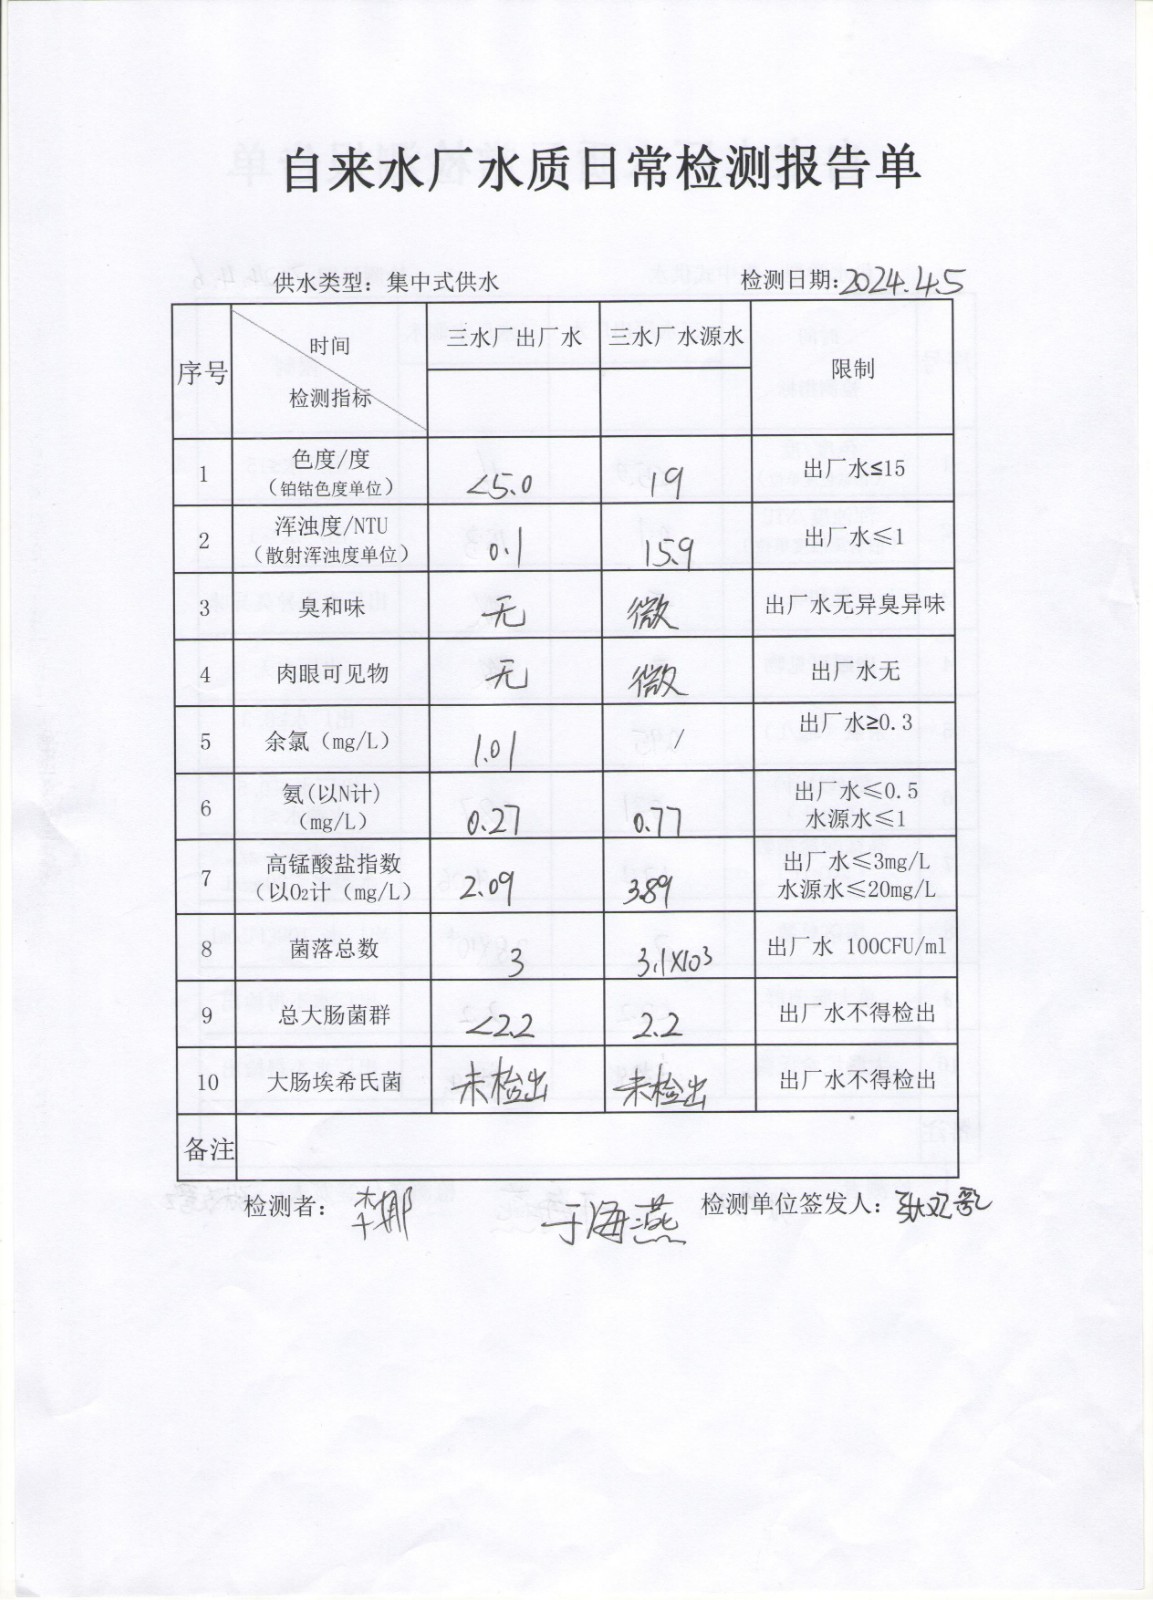 自来水厂水质日常检测报告单
供水类型：集中式供水 检测日期：2024.4.5
序号 时间 检测指标 三水厂出厂水 三水厂水源水 限制
1 色度/度（铂钴色度单位） <5.0 19 出厂水≤15
2 浑浊度/NTU（散射浑浊度单位） 0.1 15.9 出厂水≤1
3 臭和味 无 微 出厂水无异臭异味
4 肉眼可见物 无 微 出厂水无
5 余氯（mg/L） 1.01 / 出厂水≥0.3
6 氨(以N计)（mg/L） 0.27 0.77 出厂水≤0.5 水源水≤1
7 高锰酸盐指数（以O₂计（mg/L） 2.09 3.89 出厂水≤3mg/L 水源水≤20mg/L
8 菌落总数 3 3.1×10³ 出厂水 100CFU/ml
9 总大肠菌群 <2.2 2.2 出厂水不得检出
10 大肠埃希氏菌 未检出 未检出 出厂水不得检出
备注
检测者： 李娜 于海燕 检测单位签发人：